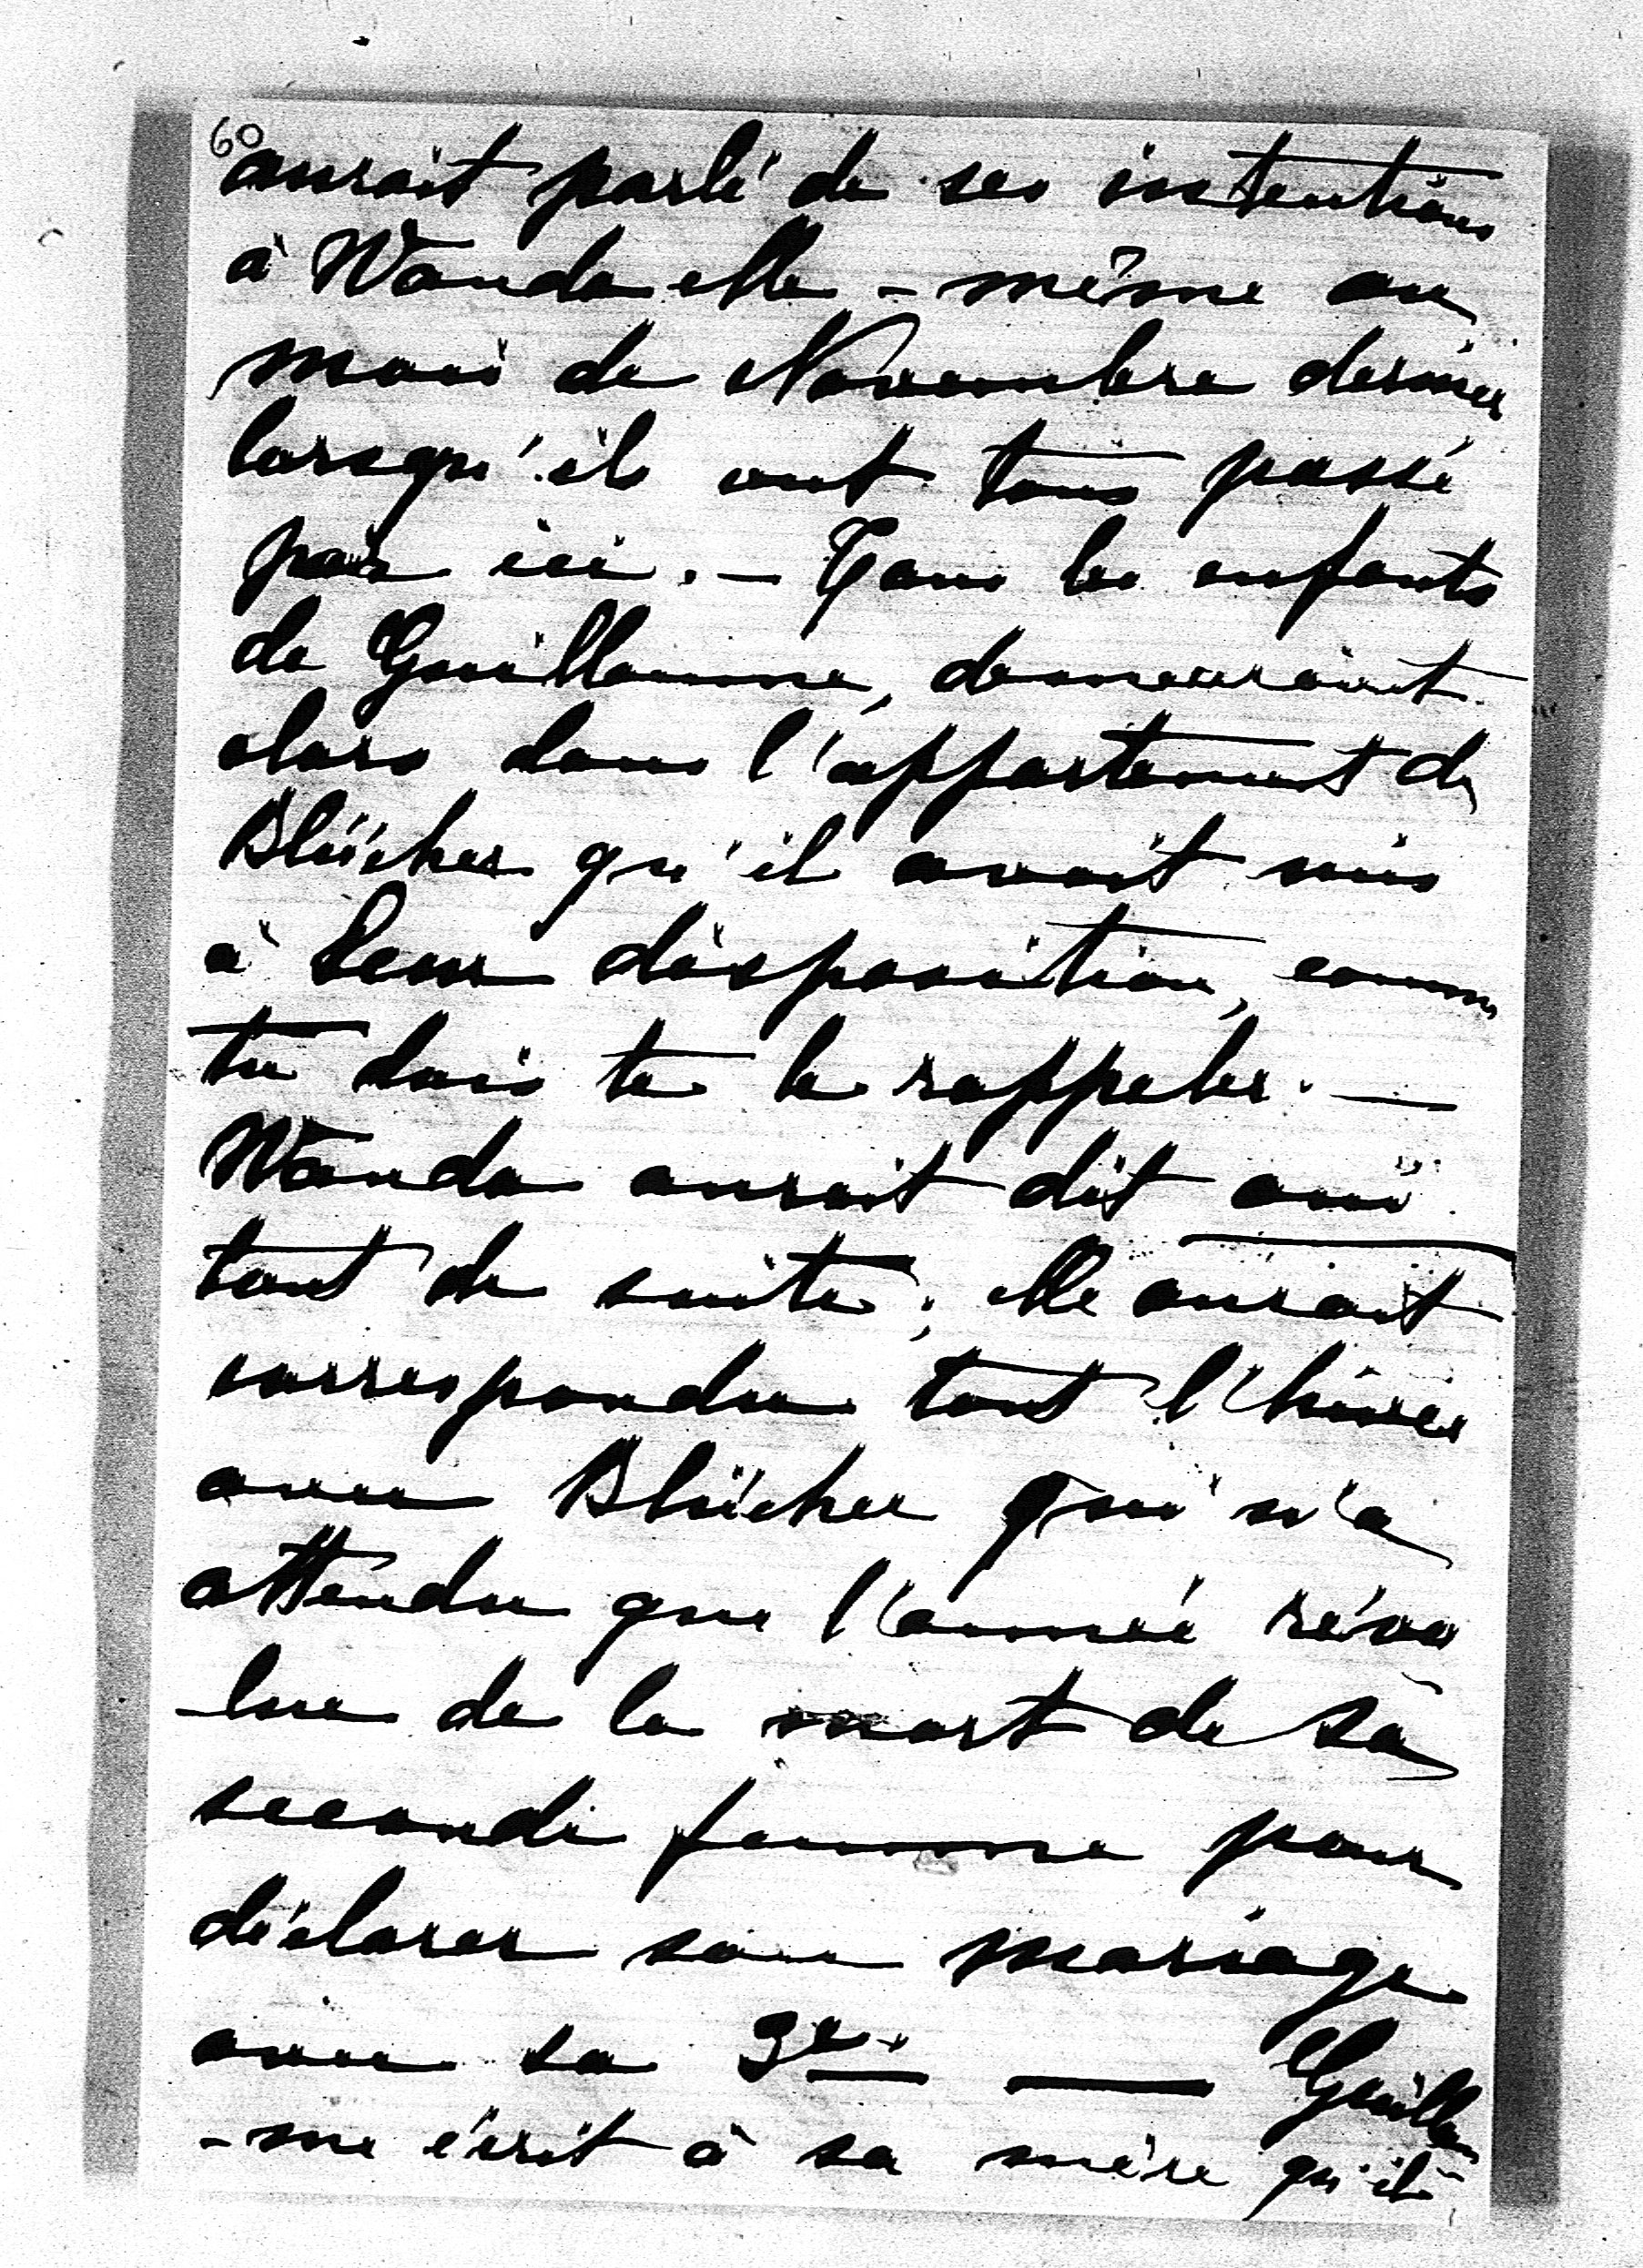 60
aurait parlé de ses intentions
à Wanda elle-même au
mois de Novembre dernier
lorsqu'ils ont tous passé
par ici. — Tous les enfants
de Guillaume, demeuraient
alors dans l'appartement de
Blücher qu'il avait mis
à leur disposition, comme
tu dois te le rappeler. —
Wanda aurait dit oui
tout de suite; elle aurait
correspondu tout l'hiver
avec Blücher qui n'a
attendu que l'année révo
-lue de la mort de sa
seconde femme pour
déclarer son mariage
avec sa 3e. — Guillau
-me écrit à sa mère qu'il